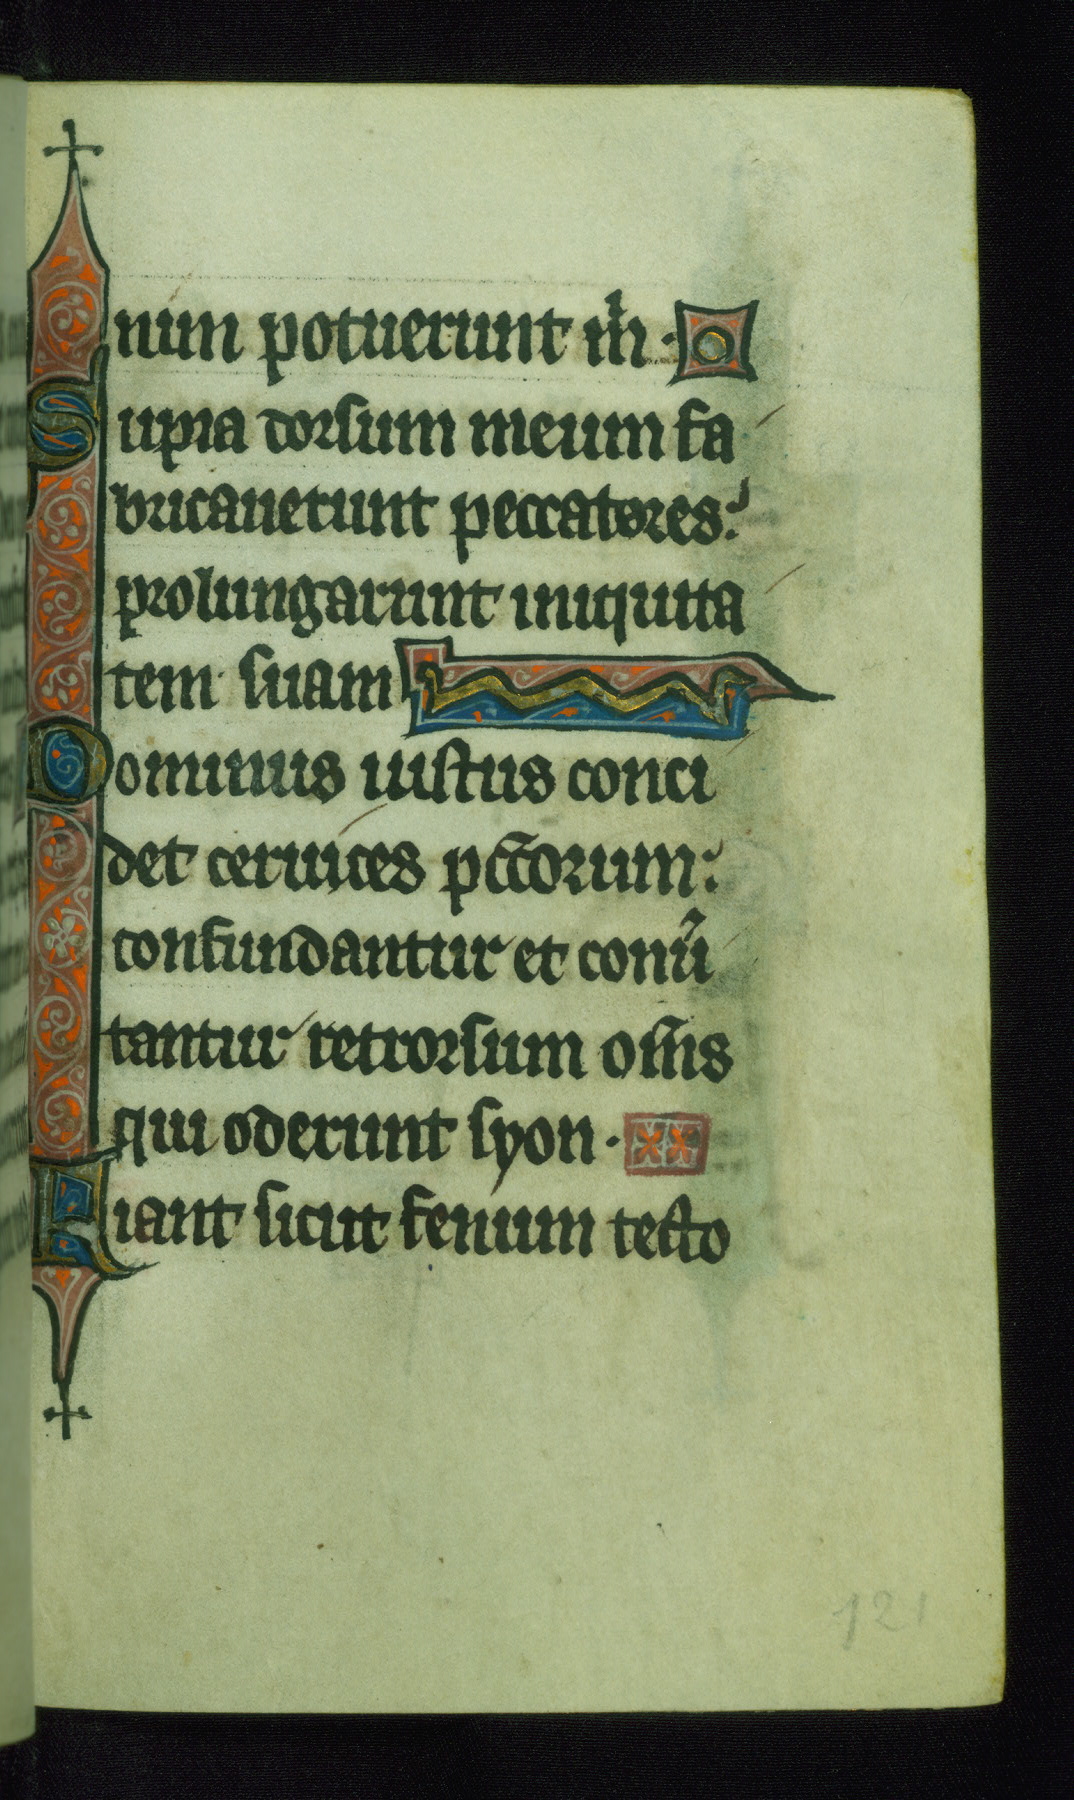 nim potuerunt m̄h ·
Supra dorsum meum fa
bricauerunt peccatores:
prolungarunt iniquita
tem suam
Dominus iustus conci
det ceruices pc̄c̄orum:
confundantur et conū
tantur retrorsum om̄s
qui oderunt syon ·
Fiant sicut fenum tecto
121